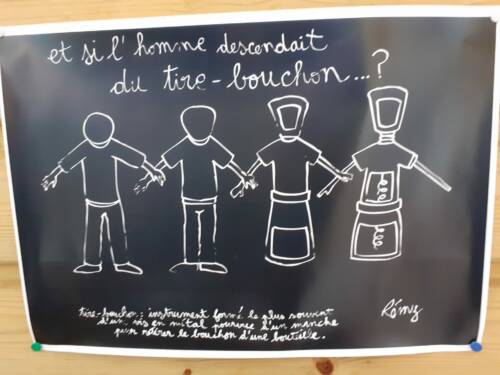 et si l'homme descendait
du tire-bouchon...?
tire-bouchon: instrument formé le plus souvent
d'un vis en métal pourvue d'un manche
pour retirer le bouchon d'une bouteille.
Rémy